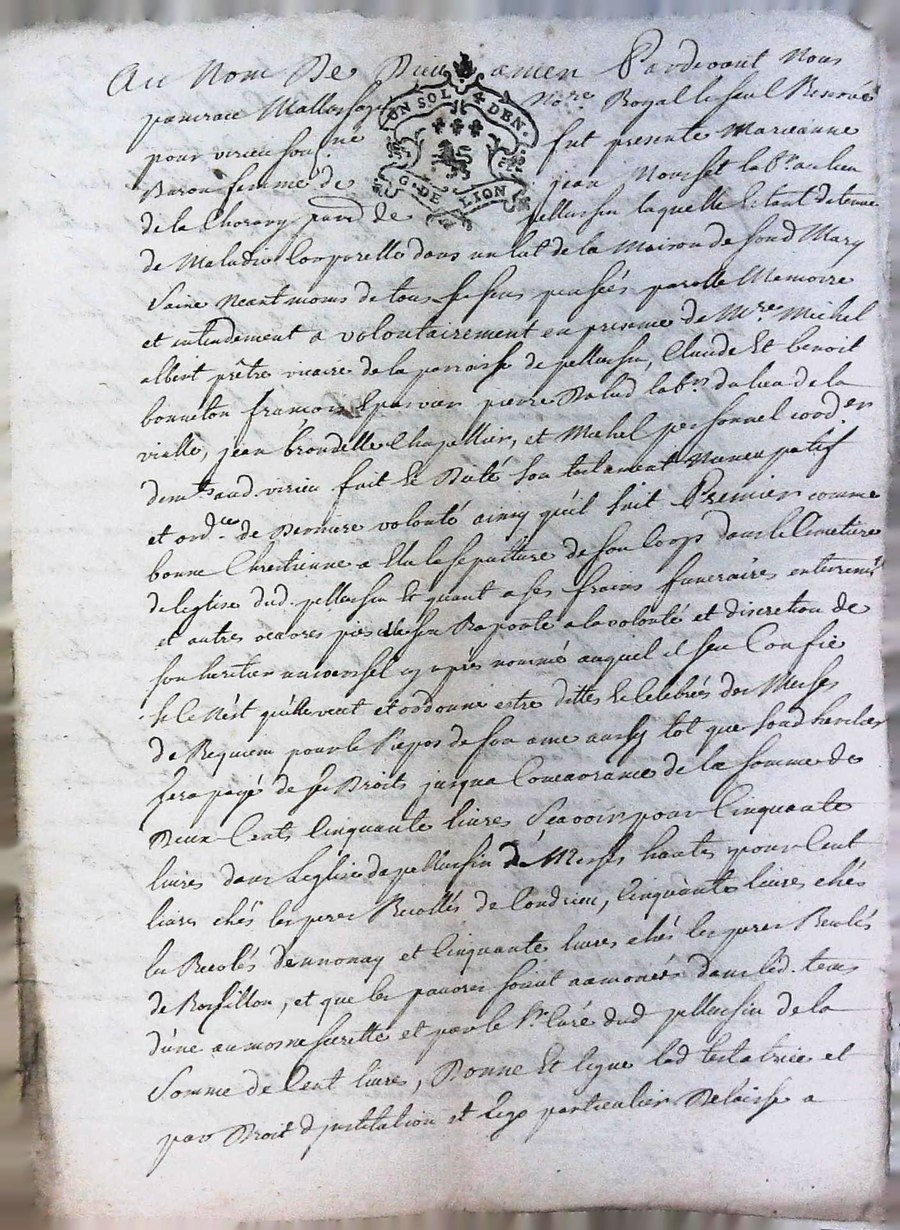 Au Nom De Dieu amen Pardevant Nous
pancrace Mallassagne No.re Royal le seul Reservé
UN SOL 4 DEN.
G. DE LION
pour virieu sousigné fut presente Marieanne
Baron femme de jean Mousset lab.r au lieu
de la Chorary parr de pellussin laquelle Etant detenue
de Maladie Corporelle dans un lit de la Maison de sond Mary
Saine Neantmoins de tous ses sens pensées parolle Memoire
et entendement a volontairement en presence de M.re Michel
albert prêtre vicaire de la parroisse de pellussin, Claude Et benoit
bonneton françois Epervier pierre Palud lab.rs du lieu de la
vialle, jean brondelle Chapellier, et Michel personnel cordo.er
dem.ts aud. virieu fait Et Dicté son testament Noncupatif
et ord.ce de Derniere volonté ainsy qu'il suit Premier comme
bonne Chretienne a Elu la sepulture de son Corps dans le Cimetiere
de leglise dud. pellussin Et quant a ses fraix funeraires enterrem.t
et autres oeuvres pies Elle s'en Raporte a la volonté et discretion de
son heritier universel cy apres nommé auquel il s'en Confie
Si Ce N'est qu'elle veut et ordonne estre dittes Et Celebrés des Messes
de Requiem pour le Repos de son ame aussy tot que sond heritier
sera payé de ses Droits jusqua Concurrance de la somme de
Deux Cents Cinquante livres Scavoir pour Cinquante
livres dans Leglise de pellussin De Messes hautes, pour Cent
livres chés les peres Recollés de Condrieu, Cinquante livres chés
les Recolés d'annonay et Cinquante livres chés les peres Recolés
de Rossillon, et que les pauvres soient aumonés dans led. tems
d'une aumosne secrette et par le S.r Curé dud pellussin de la
Somme de Cent livres, Donne Et legue lad testatrice et
par Droit d'institution et legs particulier Delaisse a